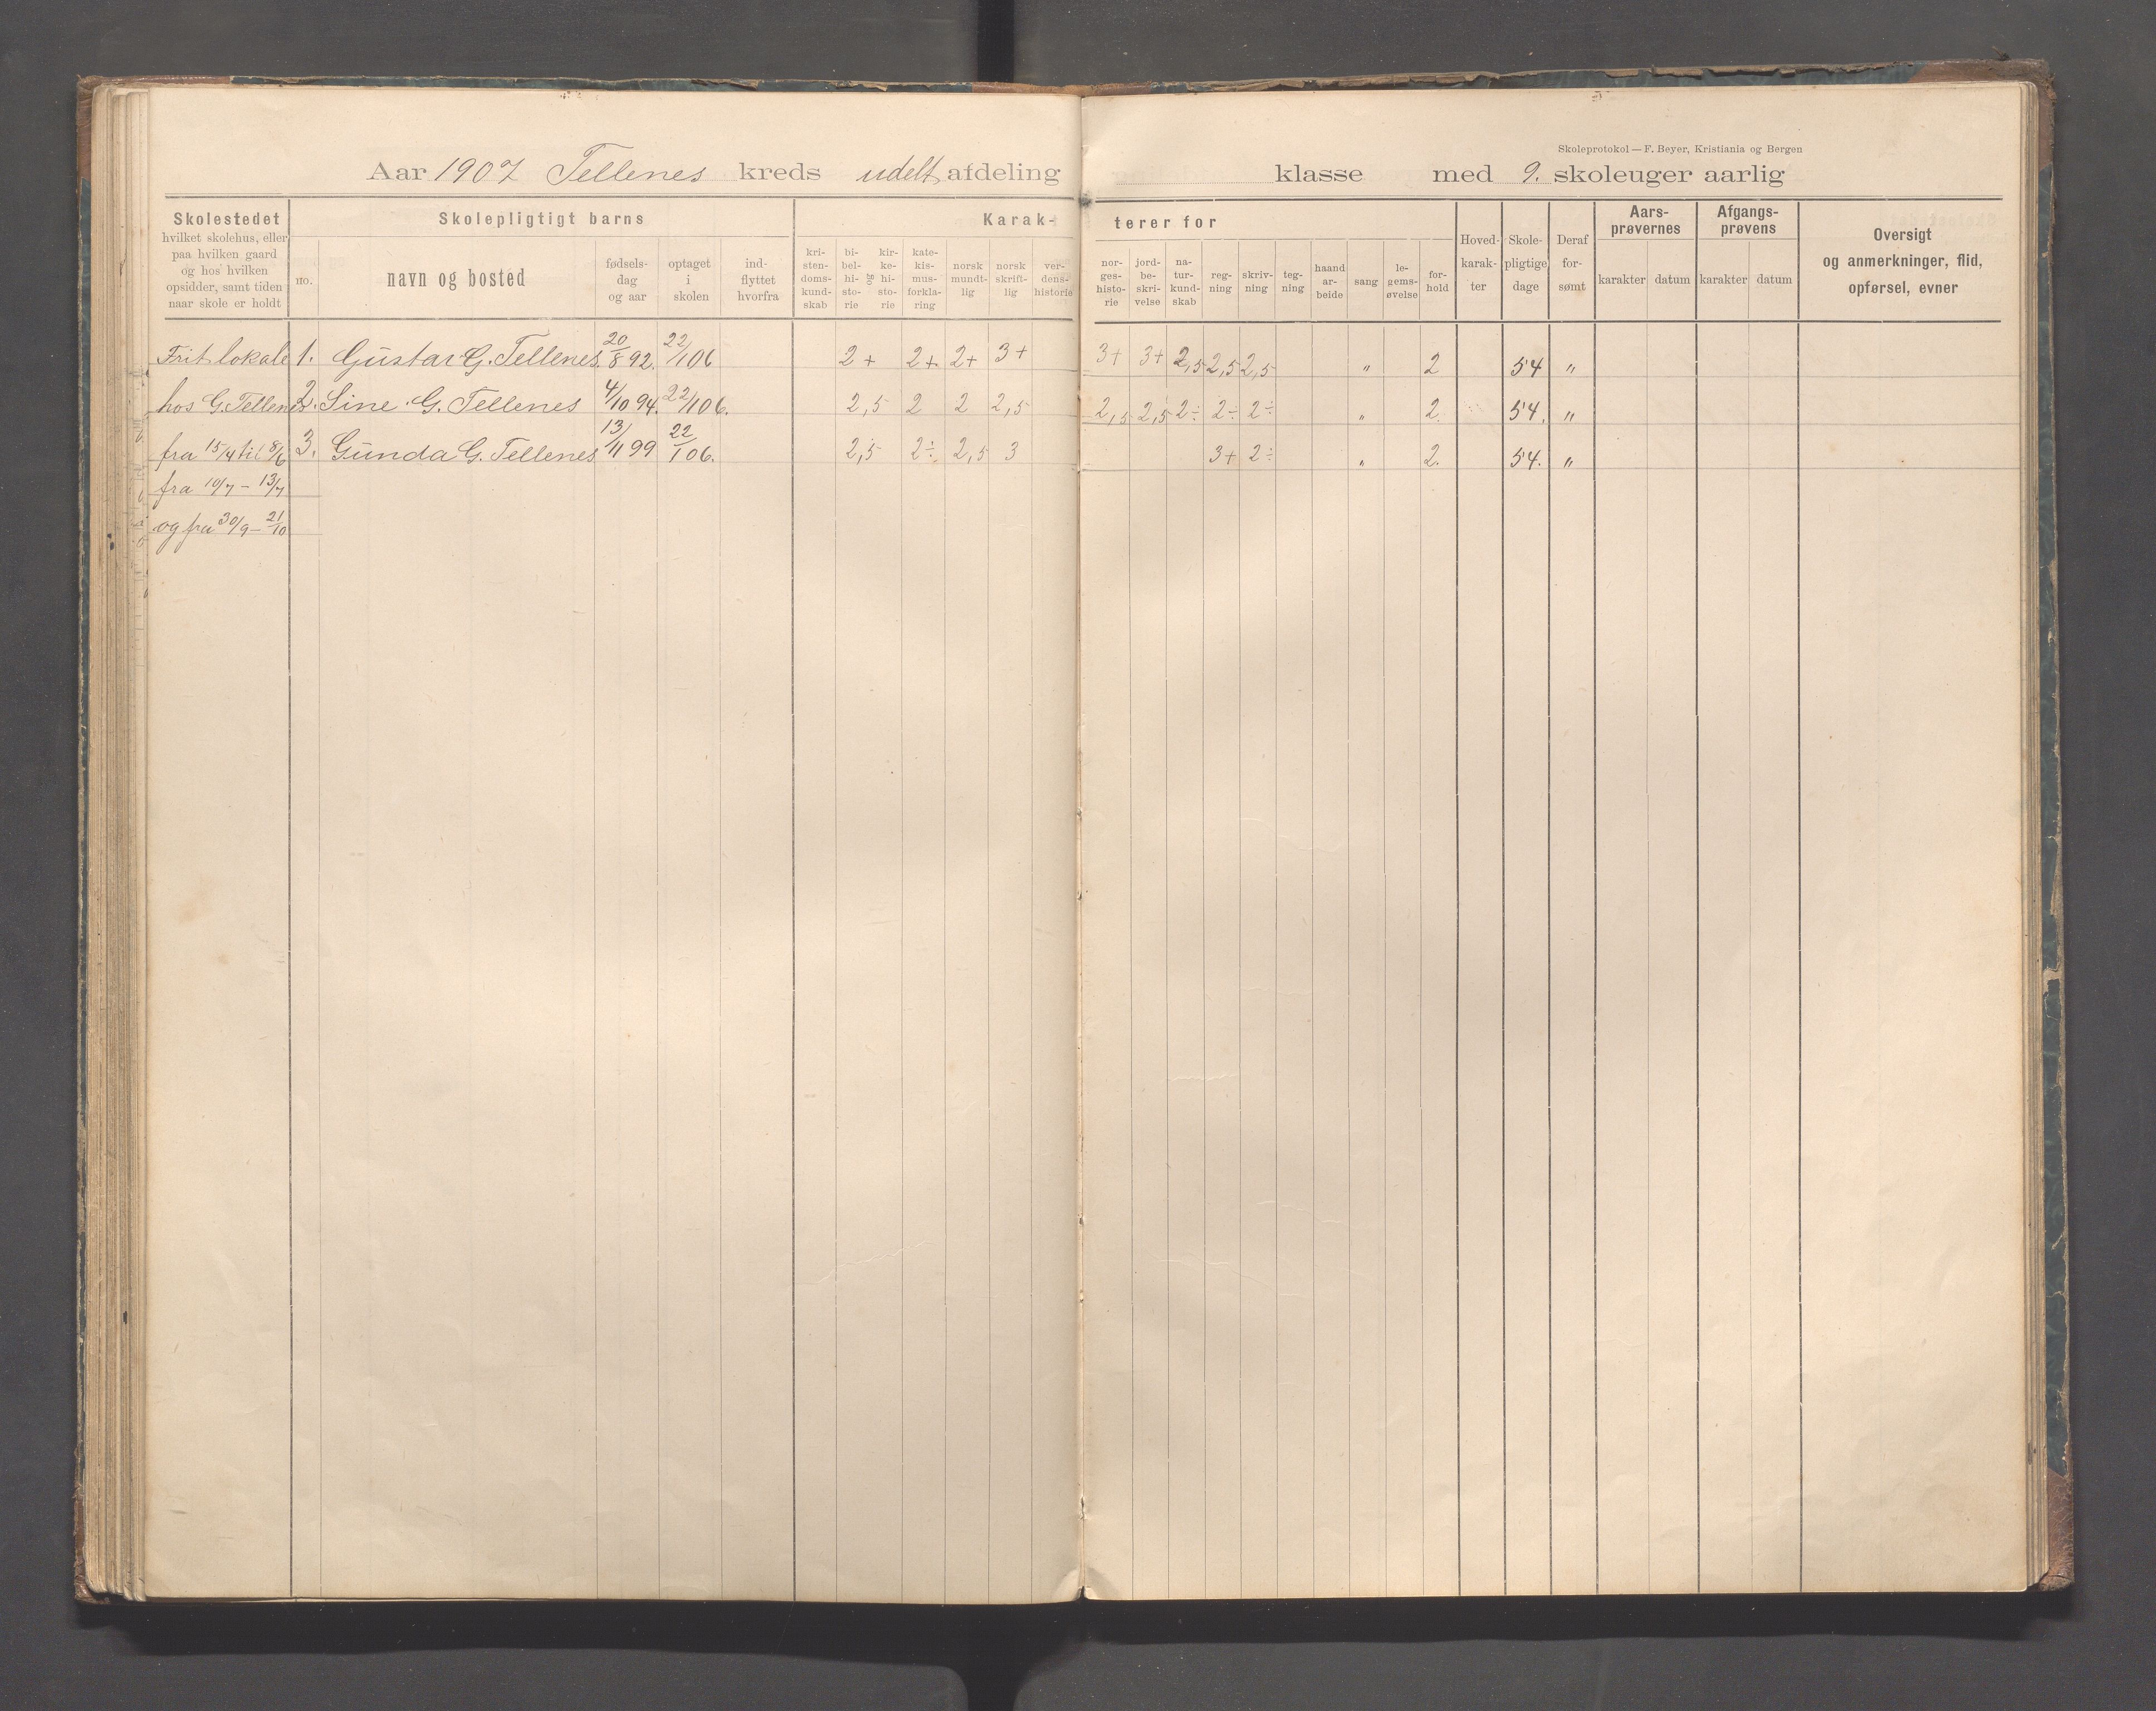 Skoleprotokol — F. Beyer, Kristiania og Bergen
Aar 1907 Tellenes kreds udelt afdeling klasse med 9. skoleuger aarlig
Skolestedet
hvilket skolehus, eller
paa hvilken gaard
og hos hvilken
opsidder, samt tiden
naar skole er holdt
Skolepligtigt barns
no.
navn og bosted
fødsels-
dag
og aar
optaget
i
skolen
ind-
flyttet
hvorfra
Karak-
terer for
kri-
sten-
doms-
kund-
skab
bi-
bel-
hi-
sto-
rie
og
kir-
ke-
hi-
sto-
rie
kate-
kis-
mus-
forkla-
ring
norsk
mundt-
lig
norsk
skrift-
lig
ver-
dens-
historie
nor-
ges-
histo-
rie
jord-
be-
skri-
velse
na-
tur-
kund-
skab
reg-
ning
skriv-
ning
teg-
ning
haand
ar-
beide
sang
le-
gems-
øvelse
for-
hold
Hoved-
karak-
ter
Skole-
pligtige
dage
Deraf
for-
sømt
Aars-
prøvernes
karakter datum
Afgangs-
prøvens
karakter datum
Oversigt
og anmerkninger, flid,
opførsel, evner
Frit lokale 1. Gustav G. Tellenes. 20/8 92. 22/1 06 2+ 2+ 2+ 3+ 3+ 3+ 2,5 2,5 2,5 " 2 54 "
hos G. Tellenes 2. Sine G. Tellenes 4/10 94. 22/1 06. 2,5 2 2 2,5 2,5 2,5 2÷ 2÷ 2÷ " 2. 54. "
fra 15/4 til 8/6 3. Gunda G. Tellenes 13/11 99 22/1 06. 2,5 2÷ 2,5 3 3+ 2÷ " 2. 54. "
fra 10/7 - 13/7
og fra 30/9 - 21/10